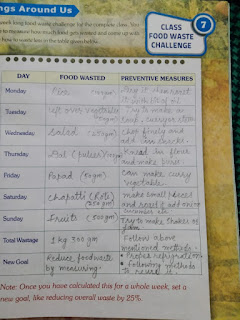 ngs Around Us
7
week long food waste challenge for the complete class. You
to measure how much food gets wasted and come up with
how to waste less in the table given below.
CLASS
FOOD WASTE
CHALLENGE
DAY FOOD WASTED PREVENTIVE MEASURES
Monday Rice
it with of oil.
Tuesday Left over vegetable Try to make
soup, curry or
Wednesday Salad Chop finely and
add in snacks.
Thursday Dal (pulses) Knead in flour
and make puris.
Friday Papad (50gm) can make curry
vegetable.
Saturday Chapatti (Roti) make small pieces
and roast & add onion
Sunday Fruits (500gm) Try to make shakes or
jam
Total Wastage 1 kg 300 gm Follow above
mentioned methods.
New Goal Reduce foodwaste • Proper refrigeration
by measuring. • Following methods
to reuse it.
Note: Once you have calculated this for a whole week, set a
new goal, like reducing overall waste by 25%.